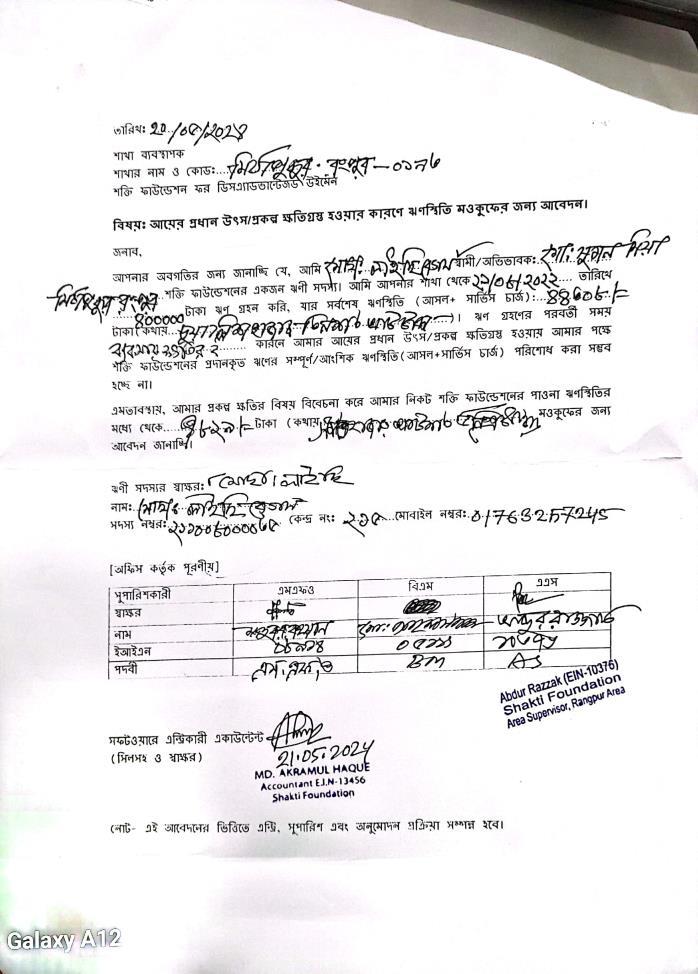 তারিখ: ২০/০৫/২০২৪
শাখা ব্যবস্থাপক
শাখার নাম ও কোড:... মিঠাপুকুর. রংপুর - ০১৭৬
শক্তি ফাউন্ডেশন ফর ডিসএ্যাডভান্টেজড উইমেন
বিষয়: আয়ের প্রধান উৎস/প্রকল্প ক্ষতিগ্রস্থ হওয়ার কারণে ঋণস্থিতি মওকুফের জন্য আবেদন।
জনাব,
আপনার অবগতির জন্য জানাচ্ছি যে, আমি মোছা: লাইছি বেগম স্বামী/অভিভাবক: মিয়া
মিঠাপুকুর রংপুর শক্তি ফাউন্ডেশনের একজন ঋণী সদস্য। আমি আপনার শাখা থেকে ২১/০৮/২০২২ তারিখে
৪০০০০০ টাকা ঋণ গ্রহন করি, যার সর্বশেষ ঋণস্থিতি (আসল+ সার্ভিস চার্জ):
টাকা (কথায়: ...)। ঋণ গ্রহণের পরবর্তী সময়
কারনে আমার আয়ের প্রধান উৎস/প্রকল্প ক্ষতিগ্রস্থ হওয়ায় আমার পক্ষে
শক্তি ফাউন্ডেশনের প্রদানকৃত ঋণের সম্পূর্ণ/আংশিক ঋণস্থিতি(আসল+সার্ভিস চার্জ) পরিশোধ করা সম্ভব
হচ্ছে না।
এমতাবস্থায়, আমার প্রকল্প ক্ষতির বিষয় বিবেচনা করে আমার নিকট শক্তি ফাউন্ডেশনের পাওনা ঋণস্থিতির
মধ্যে থেকে..... টাকা (কথায় মওকুফের জন্য
আবেদন জানাচ্ছি।
ঋণী সদস্যর স্বাক্ষর: মোছা: লাইছি
নাম: মোছা: লাইছি বেগম
সদস্য নম্বর: কেন্দ্র নং: ২১৫ ...মোবাইল নম্বর: 01763257245
[অফিস কর্তৃক পূরণীয়]
সুপারিশকারী এমএফও বিএম এএস
স্বাক্ষর
নাম আব্দুর রাজ্জাক
ইআইএন
পদবী এম.এফ.ও BM AS
Abdur Razzak (EIN-10376)
Shakti Foundation
Area Supervisor, Rangpur Area
সফটওয়ারে এন্ট্রিকারী একাউন্টেন্ট
(সিলসহ ও স্বাক্ষর) 21.05.2024
MD. AKRAMUL HAQUE
Accountant E.I.N-13456
Shakti Foundation
নোট- এই আবেদনের ভিত্তিতে এন্ট্রি, সুপারিশ এবং অনুমোদন প্রক্রিয়া সম্পন্ন হবে।
Galaxy A12